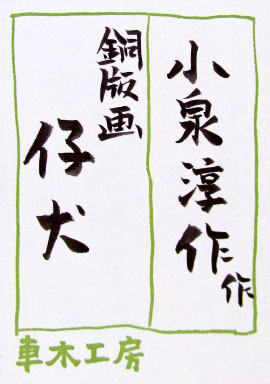 小泉淳作作
銅版画
仔犬
車木工房